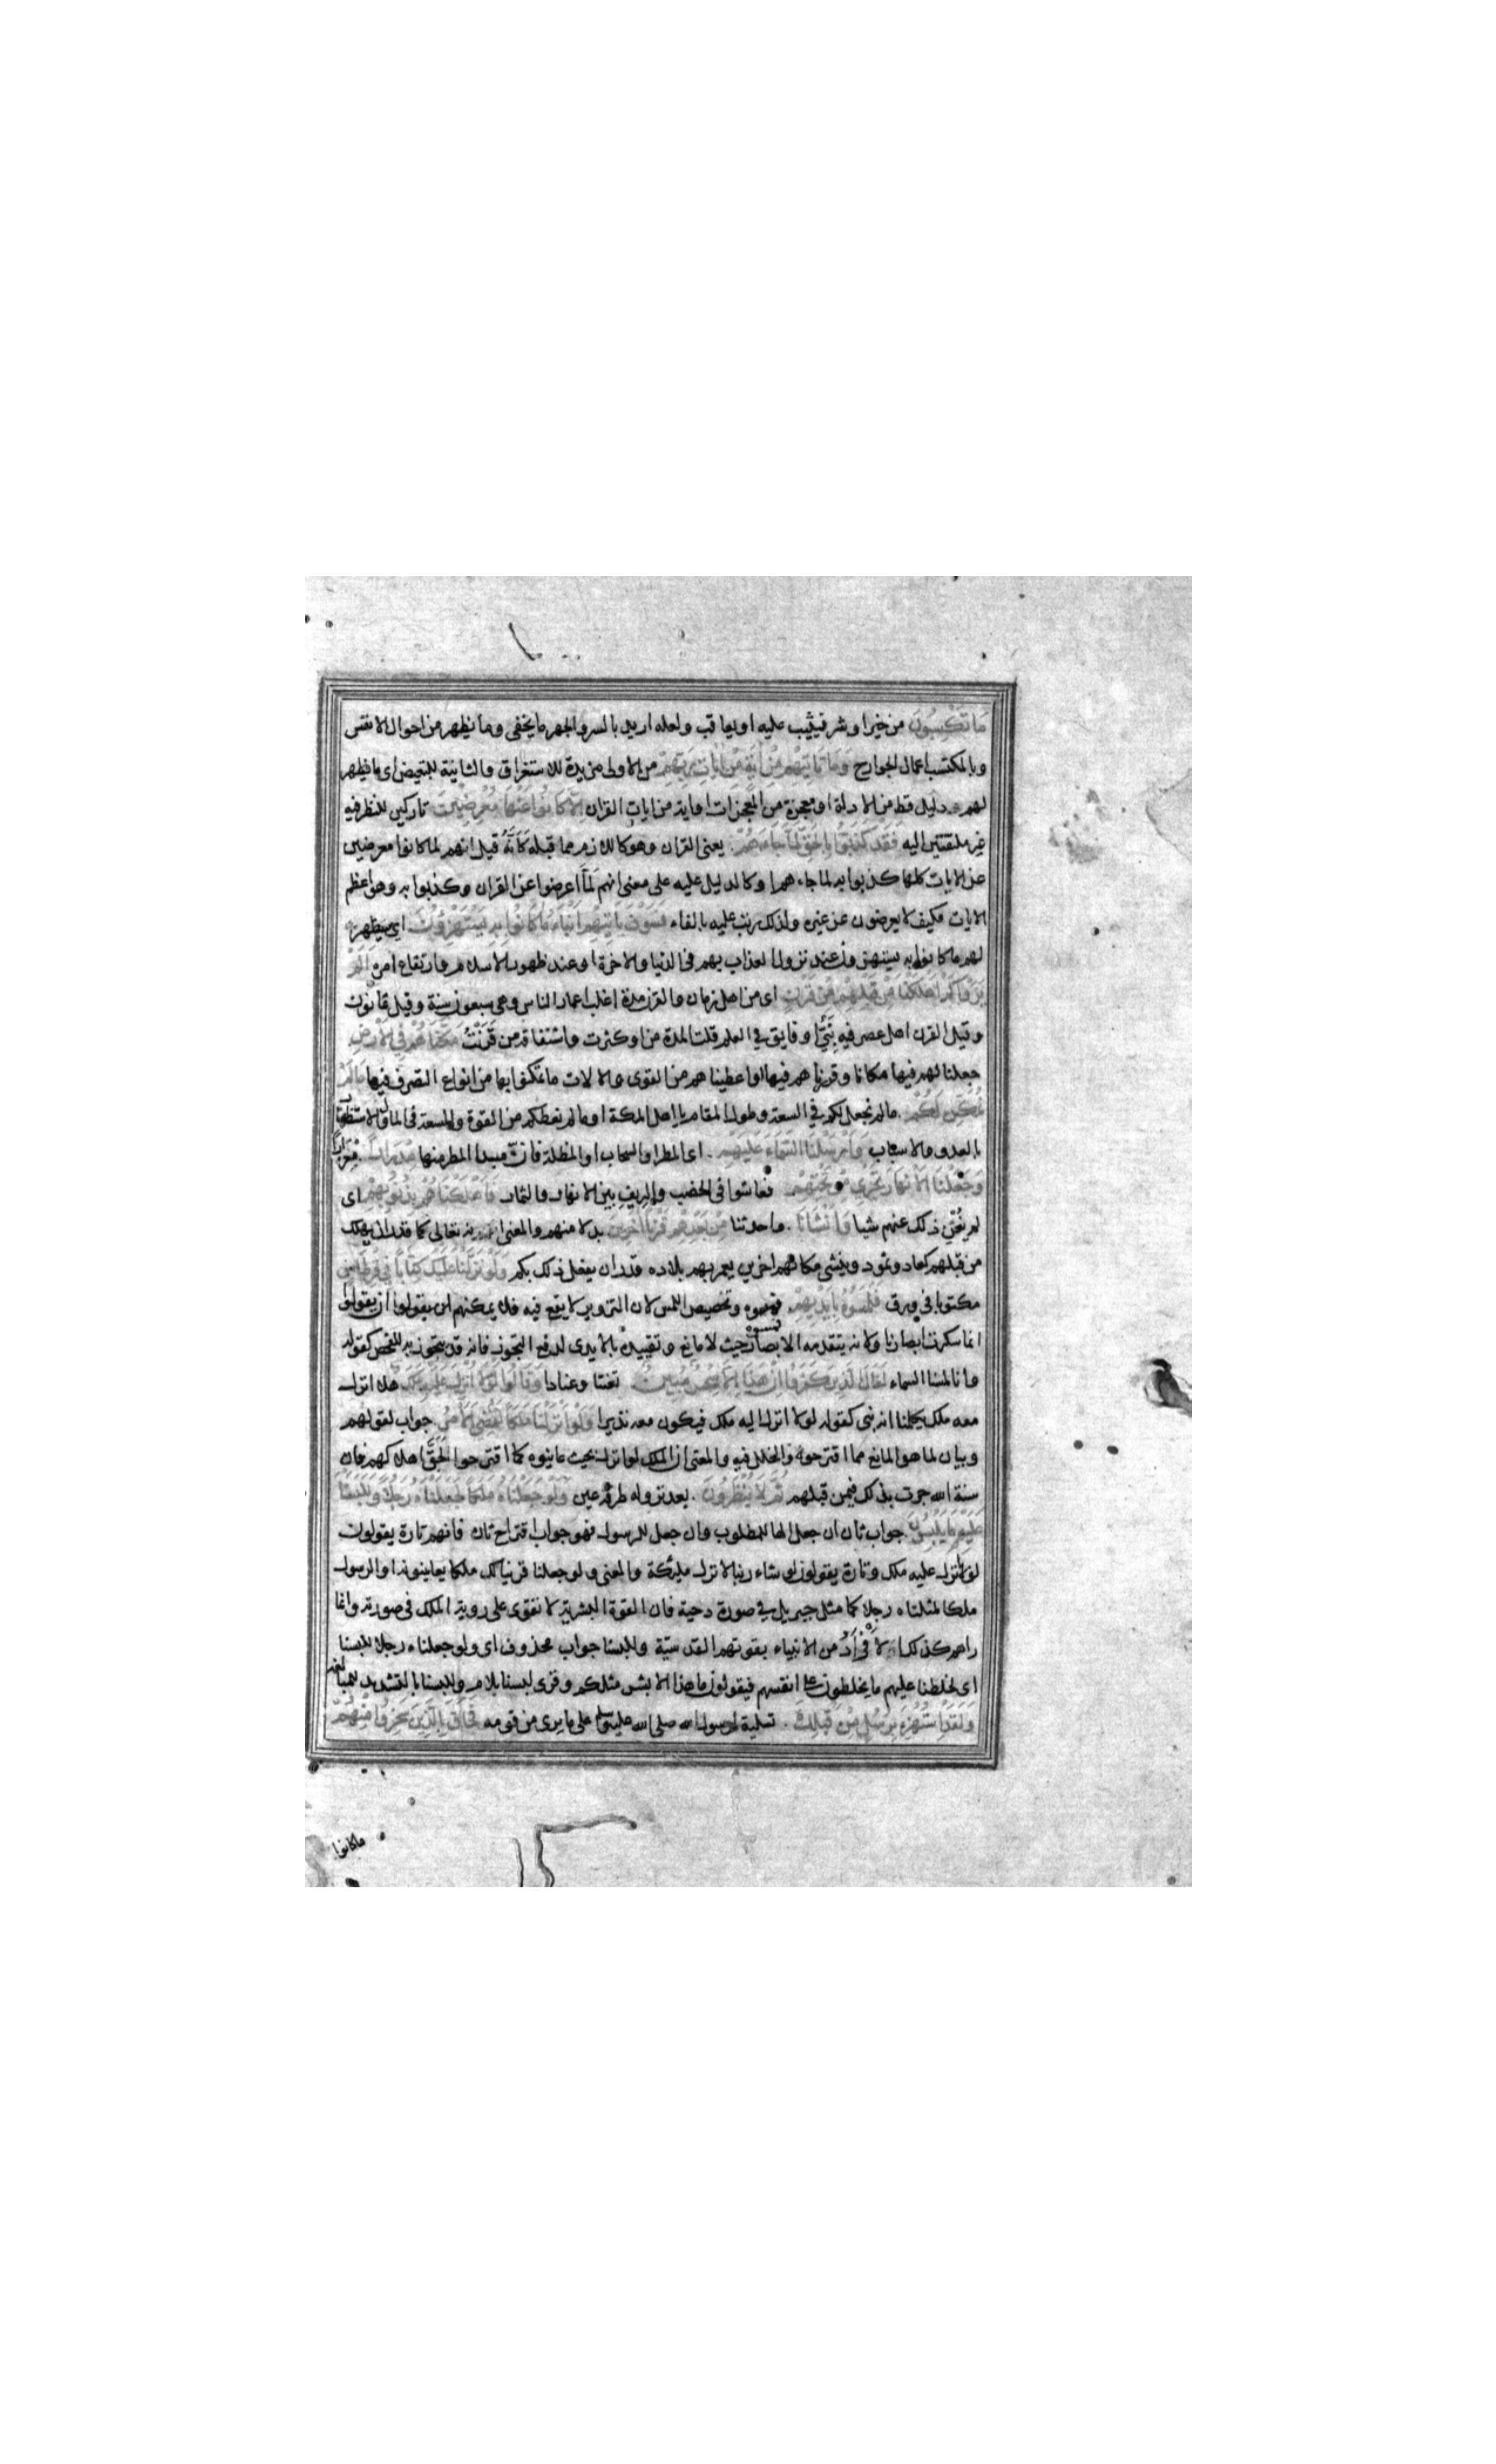 مَا تَكْسِبُونَ من خيرا وشر فيثيب عليه او يعاقب ولعله اريد بالسر والجهر ما يخفى وما يظهر من احوال الانفس
وبالمكتسب اعمال الجوارح وَمَا تَاتِيهِمْ مِنْ اٰيَةٍ مِنْ اٰيَاتِ رَبِّهِمْ من الاولى مزيدة للاستغراق والثانية للتبعيض اى ما يظهر
لهم دليل قط من الادلة او معجزة من المعجزات او اية من ايات القران اِلَّا كَانُوا عَنْهَا مُعْرِضِينَ تاركين للنظر فيه
غير ملتفتين اليه فَقَدْ كَذَّبُوا بِالْحَقِّ لَمَّا جَاءَهُمْ يعنى القران وهو كاللازم مما قبله كَاَنَّهُ قيل انهم لما كانوا معرضين
عن الايات كلها كذبوا به لما جاءهم او كالدليل عليه على معنى انهم لَمَّا اعرضوا عن القران وكذبوا به وهو اعظم
الايات فكيف لا يعرضون عن غيره ولذلك رتب عليه بالفاء فَسَوْفَ يَاْتِيهِمْ اَنْبَاءُ مَا كَانُوا بِهِ يَسْتَهْزِؤُنَ اى سيظهر
لهم ما كانوا به يستهزؤن عند نزول العذاب بهم فى الدنيا والاخرة او عند ظهور الاسلام وارتفاع امره اَلَمْ
يَرَوْا كَمْ اَهْلَكْنَا مِنْ قَبْلِهِمْ مِنْ قَرْنٍ اى من اهل زمان والقرن مدة اغلب اعمار الناس وهى سبعون سنة وقيل ثمانون
وقيل القرن اهل عصر فيه نَبِيٌّ او فايق فى العلم قلت المدة من او كثرت واشتقاقه من قَرَنْتُ مَكَّنَّاهُمْ فِي الْاَرْضِ
جعلنا لهم فيها مكانا وقررناهم فيها او اعطيناهم من القوى والالات ما تمكنوا بها من انواع التصرف فيها مَا لَمْ
نُمَكِّنْ لَكُمْ ما لم نجعل لكم فى السعة وطول المقام يا اهل المكة او ما لم نعطكم من القوة والسعة فى المال والاستظهار
بالعدد والاسباب وَاَرْسَلْنَا السَّمَاءَ عَلَيْهِمْ اى المطر او السحاب او المظلة فان مبدا المطر منها مِدْرَارًا مغزارا
وَجَعَلْنَا الْاَنْهَارَ تَجْرِي مِنْ تَحْتِهِمْ فعاشوا فى الخصب والريف بين الانهار والثمار فَاَهْلَكْنَاهُمْ بِذُنُوبِهِمْ اى
لم يُغْنِ ذلك عنهم شيا وَاَنْشَاْنَا واحدثنا مِنْ بَعْدِهِمْ قَرْنًا اٰخَرِينَ بدلا منهم والمعنى انه تعالى كما قدر ان يهلك
من قبلهم كعاد وثمود وينشى مكانهم اخرين يعمر بهم بلاده قدر ان يفعل ذلك بكم وَلَوْ نَزَّلْنَا عَلَيْكَ كِتَابًا فِي قِرْطَاسٍ
مكتوبا فى ورق فَلَمَسُوهُ بِاَيْدِيهِمْ فمسوه وتخصيص اللمس لان التزوير لا يقع فيه فلا يمكنهم ان يقولوا
انما سكرت ابصارنا ولانه يتقدمه الابصار حيث لا مانع وتقييده بالايدى لدفع التجوز فانه قد يتجوز به للفحص كقوله
وانا لمسنا السماء لَقَالَ الَّذِينَ كَفَرُوا اِنْ هَذَا اِلَّا سِحْرٌ مُبِينٌ تعنتا وعنادا وَقَالُوا لَوْلَا اُنْزِلَ عَلَيْهِ مَلَكٌ هلا انزل
معه ملك يكلمنا انه نبى كقوله لولا انزل اليه ملك فيكون معه نذيرا وَلَوْ اَنْزَلْنَا مَلَكًا لَقُضِيَ الْاَمْرُ جواب لقولهم
وبيان لما هو المانع مما اقترحوه والخلل فيه والمعنى ان الملك لو انزل بحيث عاينوه كما اقترحوا لَحَقَّ اهلاكهم فان
سنة الله جرت بذلك فيمن قبلهم ثُمَّ لَا يُنْظَرُونَ بعد نزوله طرفة عين وَلَوْ جَعَلْنَاهُ مَلَكًا لَجَعَلْنَاهُ رَجُلًا وَلَلَبَسْنَا
عَلَيْهِمْ مَا يَلْبِسُونَ جواب ثان ان جعل الها للمطلوب وان جعل للرسول فهو جواب اقتراح ثان فانهم تارة يقولون
لولا انزل عليه ملك وتارة يقولون لو شاء ربنا لانزل مليكة والمعنى ولو جعلنا قرينا لك ملكا يعاينونه او الرسول
ملكا لمثلناه رجلا كما مثل جبريل فى صورة دحية فان القوة البشرية لا تقوى على روية الملك فى صورته وانما
راهم كذلك الافراد من الانبياء بقوتهم القدسية وللبسنا جواب محذوف اى ولو جعلناه رجلا للبسنا
اى لخلطنا عليهم ما يخلطون على انفسهم فيقولون ما هذا الا بشر مثلكم وقرى لبسنا بلام وللبسنا بالتشديد للمبالغة
وَلَقَدِ اسْتُهْزِئَ بِرُسُلٍ مِنْ قَبْلِكَ تسلية لرسول الله صلى الله عليه وسلم على ما يرى من قومه فَحَاقَ بِالَّذِينَ سَخِرُوا مِنْهُمْ
ماكانوا